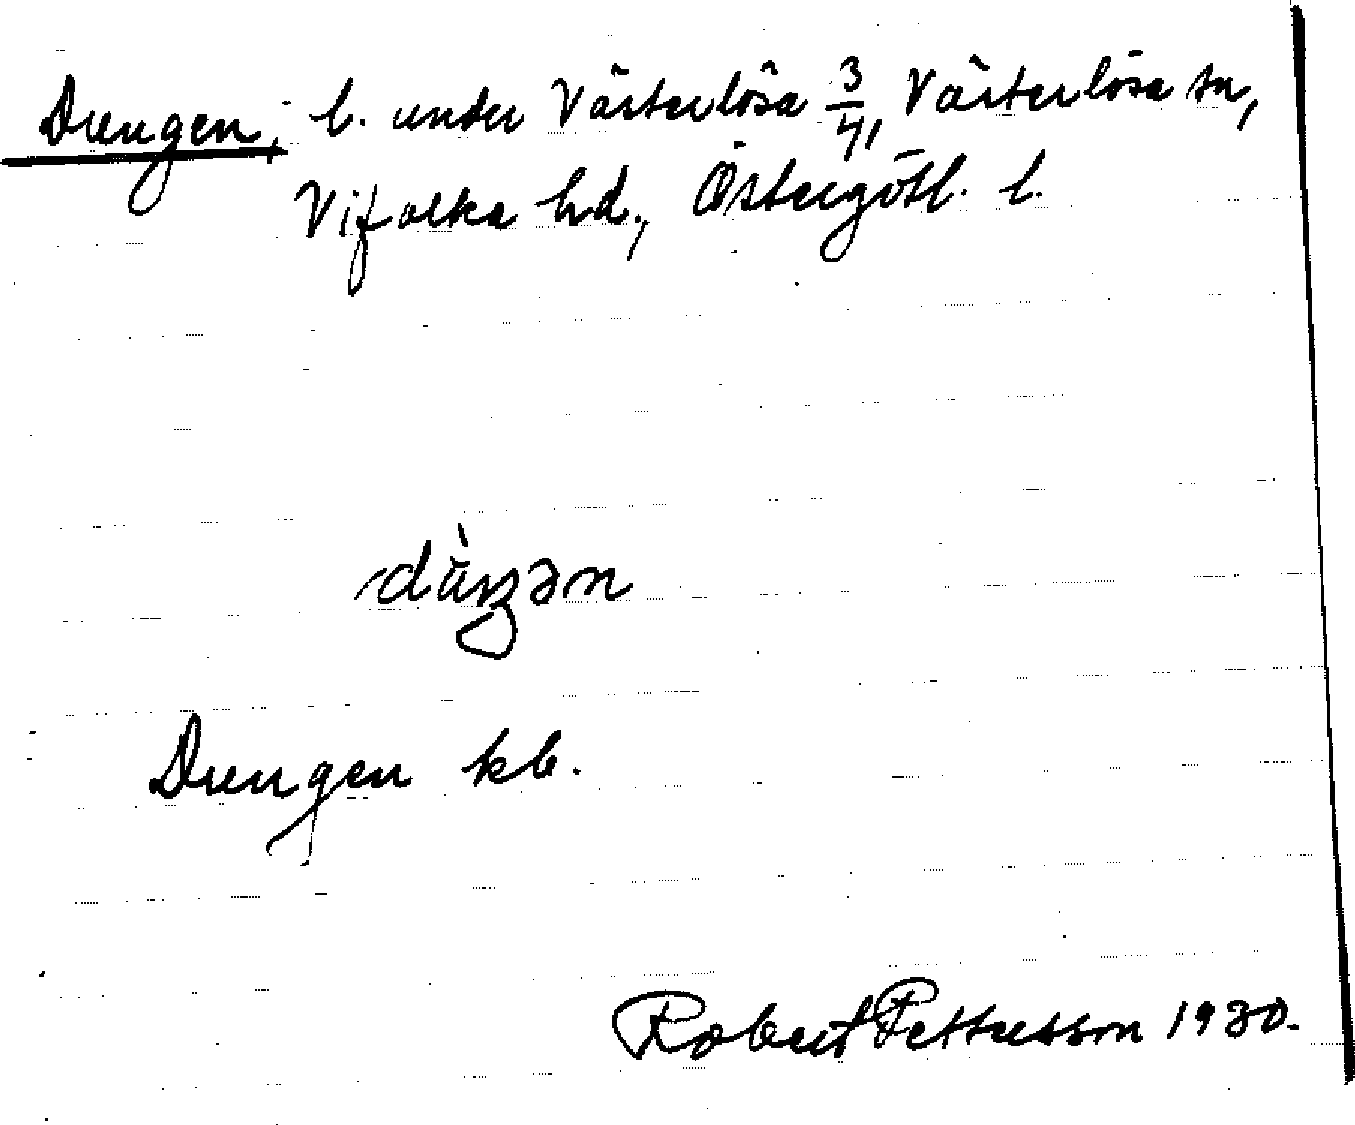 Drengen, l. under Västerlösa 3/4, Västerlösa sn,
Vifolka hd., Östergötl. l.
Drengen kb.
Robert Pettersson 1930.